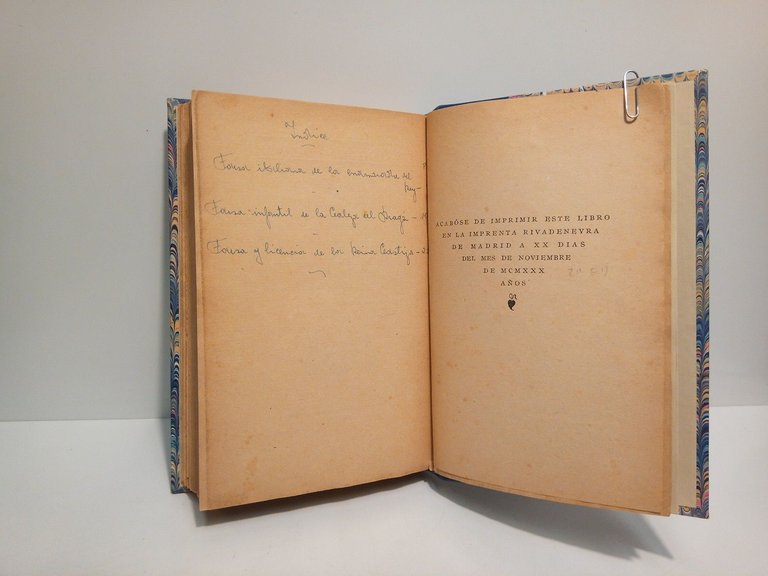 Indice
Farsa italiana de la enamorada del
Rey-
Farsa infantil de la Cabeza del Drago -
Farsa y licencia de la Reina Castiza -
ACABÓSE DE IMPRIMIR ESTE LIBRO
EN LA IMPRENTA RIVADENEYRA
DE MADRID A XX DIAS
DEL MES DE NOVIEMBRE
DE MCMXXX
AÑOS